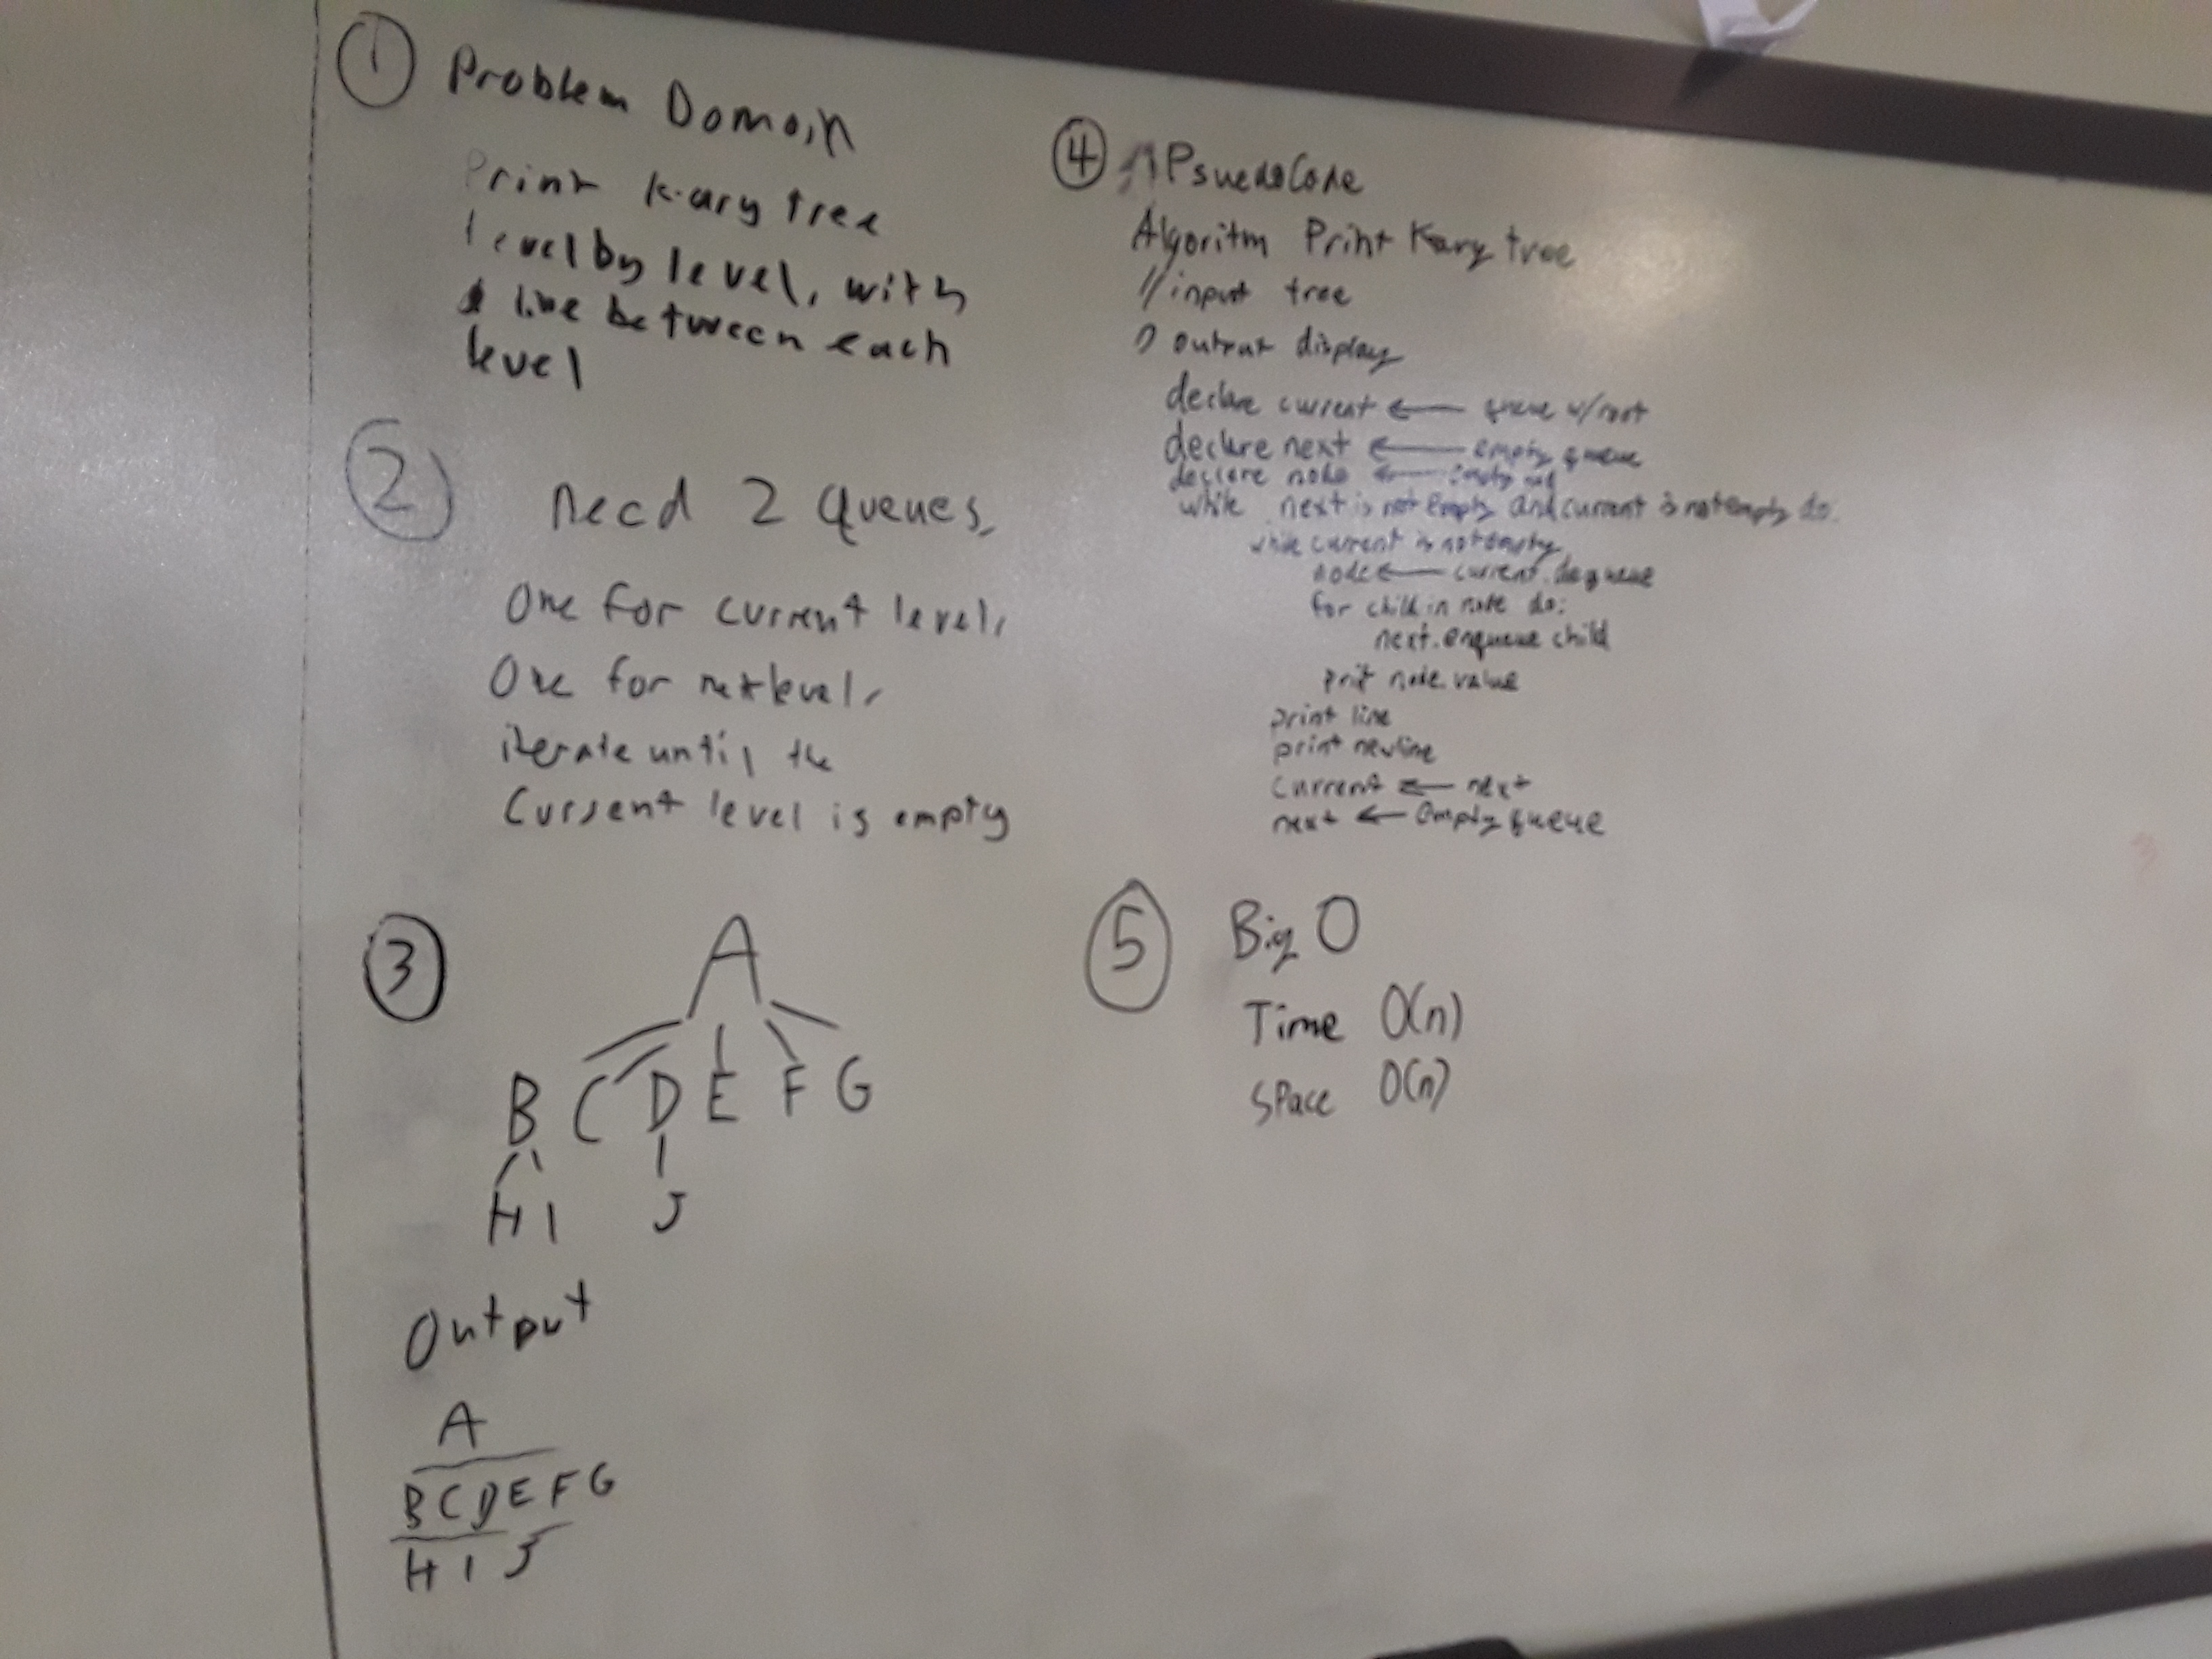 1 Problem Domain
Print k-ary tree
level by level, with
line between each
level
2 need 2 Queues,
One for current level,
One for next level,
iterate until the
Current level is empty
3
A
B C D E F G
H I J
Output
A
B C D E F G
H I J
4 PsuedoCode
Algoritm Print Kary tree
// input tree
output display
declare current ← queue w/root
declare next ← empty queue
declare node ← empty
while next is not empty and current is not empty do:
while current is not empty
node ← current.dequeue
for child in node do:
next.enqueue child
print node.value
print line
print newline
current ← next
next ← empty queue
5 Big O
Time O(n)
Space O(n)